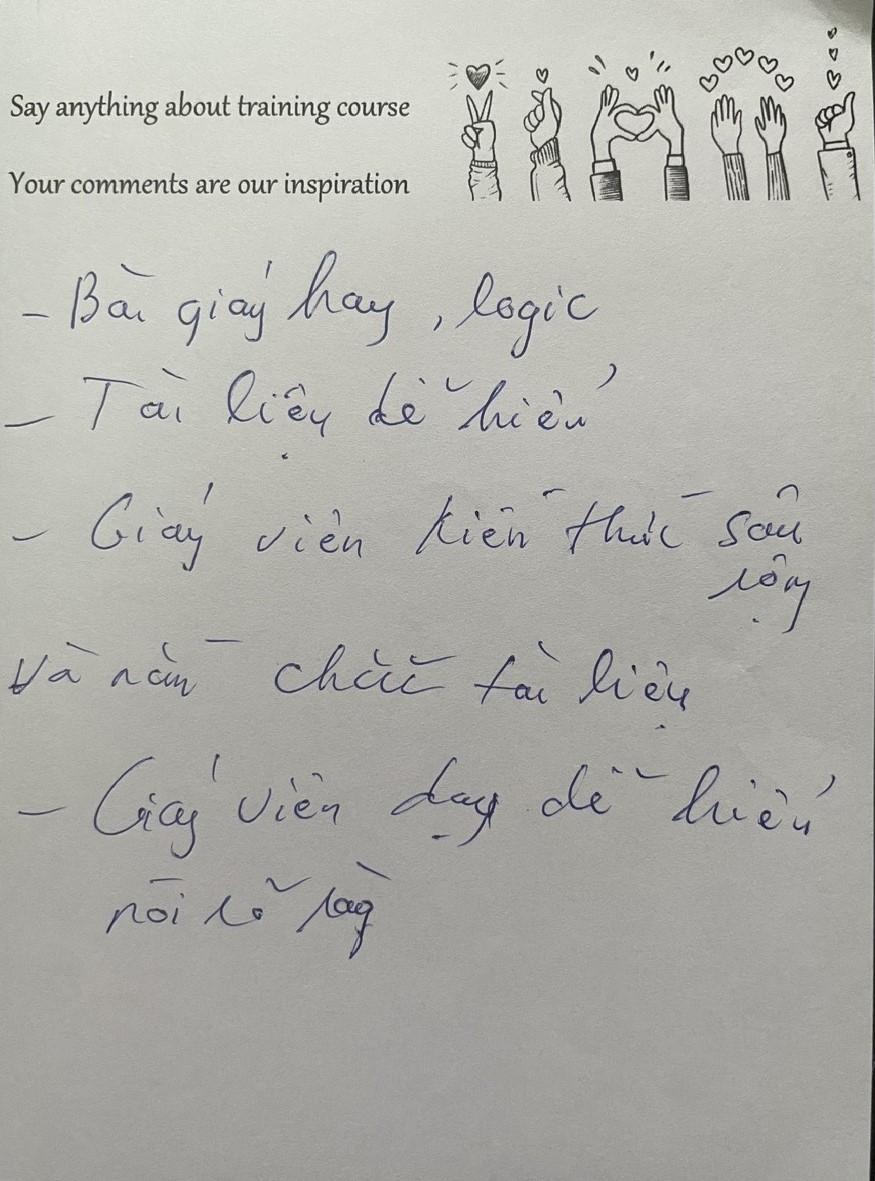 Say anything about training course
Your comments are our inspiration
- Bài giảng hay, logic
- Tài liệu dễ hiểu
- Giảng viên kiến thức sâu
rộng
và nắm chắc tài liệu
- Giảng viên dạy dễ hiểu
nói rõ ràng